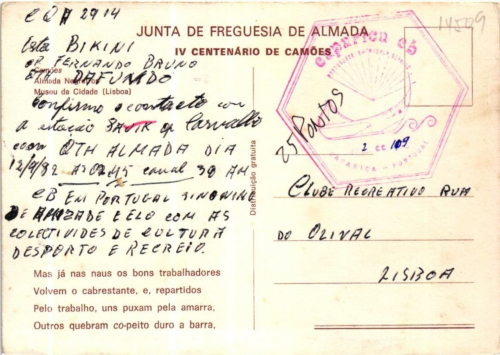 CQA 2914
14509
JUNTA DE FREGUESIA DE ALMADA
IV CENTENÁRIO DE CAMÕES
Esta BIKINI
OP FERNANDO BRUNO
Camões
QTH DAFUNDO
Almada Negreiros
Museu da Cidade (Lisboa)
Confirmo o contacto com
a estação op Carvalho
com QTH ALMADA DIA
12/9/82 canal 30 AM
CB EM PORTUGAL SINONIMO
DE AMIZADE E ELO COM AS
COLETIVIDES DE CULTURA
DESPORTO E RECREIO.
Mas já nas naus os bons trabalhadores
Volvem o cabrestante, e, repartidos
Pelo trabalho, uns puxam pela amarra,
Outros quebram co-peito duro a barra,
Distribuição gratuita
caparica cb
CAPARICA - PORTUGAL
2 CC 109
25 PONTOS
CLUBE RECREATIVO RUA
DO OLIVAL
LISBOA